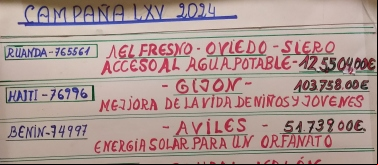 CAMPAÑA LXV 2024
RUANDA-765561 ÁELFRESNO-OVIEDO-SIERO
ACCESO AL AGUA POTABLE-125.504,00€
HAITI-76996 -GIJON- 103.758.00€
MEJORA DE LA VIDA DE NIÑOS Y JOVENES
BENIN-74997 -AVILES- 51.739.00€.
ENERGIA SOLAR PARA UN ORFANATO